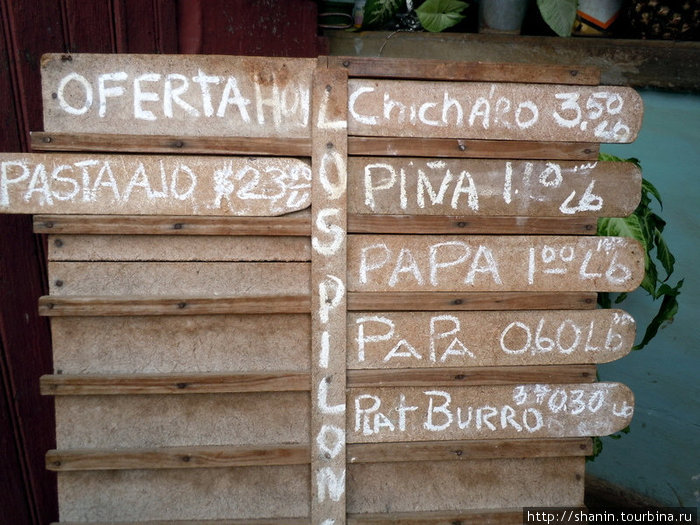 OFERTA HOY
PASTA AJO $23.00
LOS PILON
CHICHARO 3.50 Lb
PIÑA 1.10 Lb
PAPA 1.00 Lb
PAPA 0.60 Lb
PLAT BURRO 0.30 Lb
http://shanin.tourbina.ru